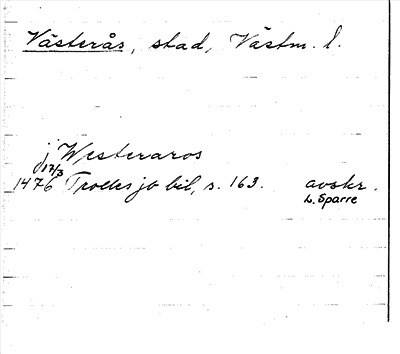 Västerås, stad, Västm. l.
j Westeraros
17/3
1476 Trolles jb bil, s. 163. avskr.
L. Sparre